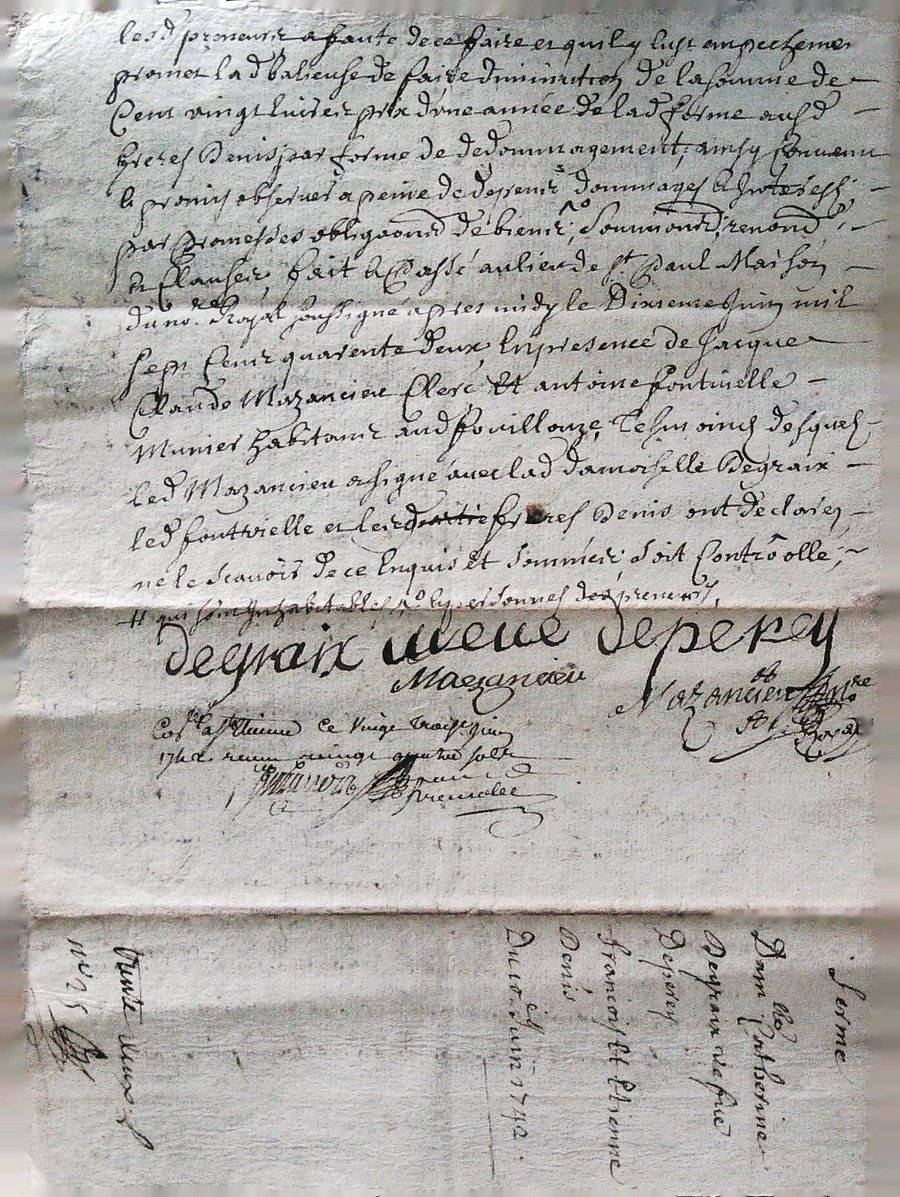 lesd preneurs a faute de ce faire et quil y eust empechemen
promet lad balieuse de faire diminution de la somme de
Cent vingt livres prix d'une année de lad ferme ausd
freres Denis par forme de dedommagement, ainsy convenu
et promis observer a peine de depens dommages & Interests
par promesses obligaons de biens, soumions, renond
& Clauses, fait & Passé au lieu de st Paul Maison
du no.re Royal soussigné apres midy le Dixieme Juin mil
sept Cens quarente deux, En presence de Jacque
Claude Mazancieu Clerc Et antoine fontvielle
Munier habitans aud fouillouze, Tesmoins desquels
led Mazancieu a signé avec lad damoiselle Degraix
led fontvielle et lesd freres Denis ont declaré
ne le scavoir de ce Enquis et sommés, soit Controolle,
degraix veuve deperey
Mazancieu
Mazancieu
Royal
a st Etienne Ce vingt trois Juin
1742 vingt quatre sols
ferme
Dam lle Catherine
Degraix vefve
Deperey
A
francois Et Etienne
Denis
Du 10.e Juin 1742
trente deux
no 25